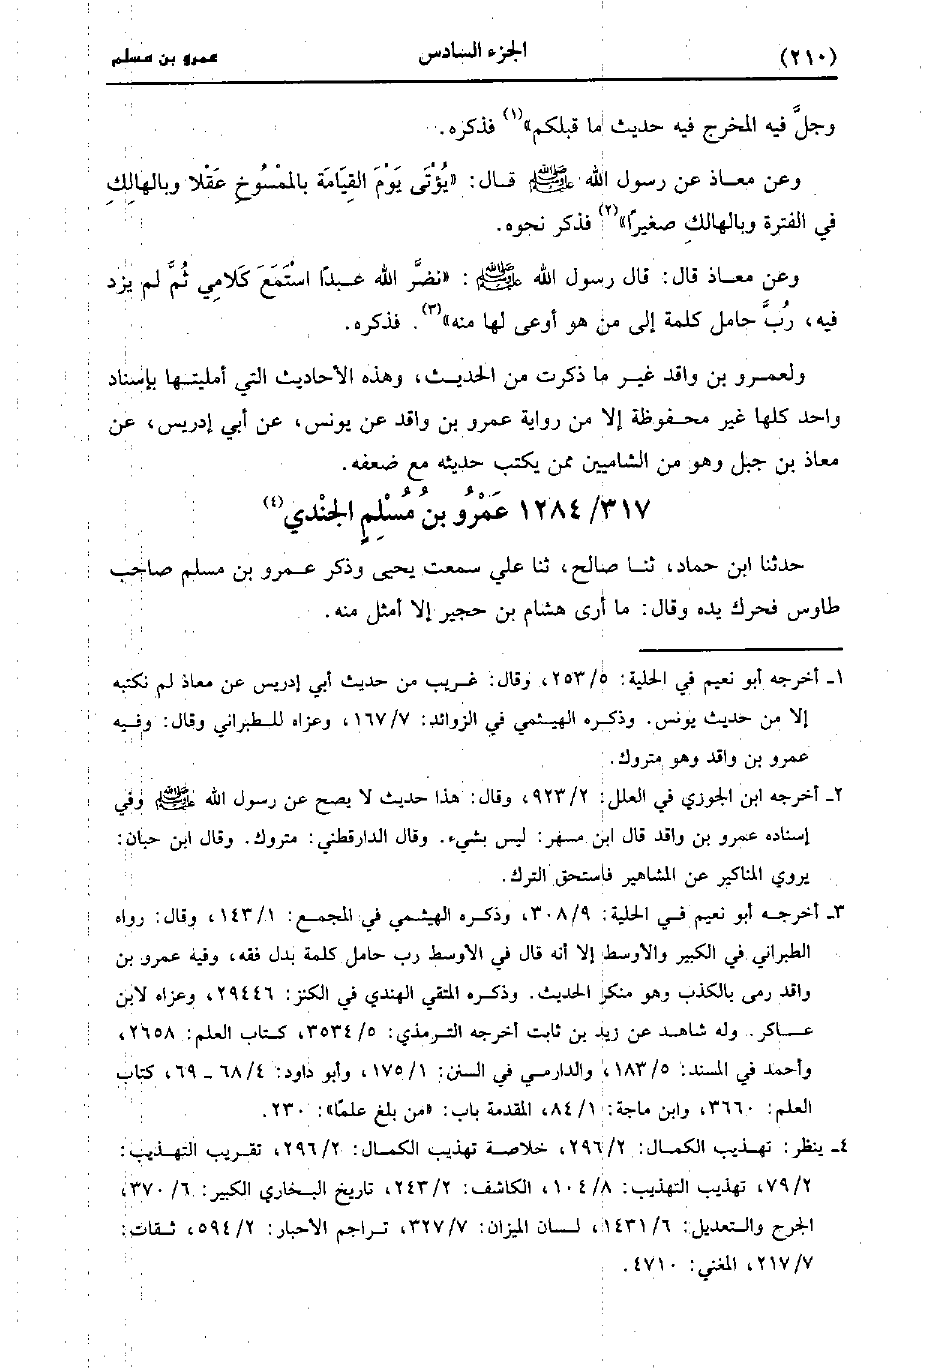 (٢١٠) الجزء السادس عمرو بن مسلم
وجلَّ فيه المخرج فيه حديث ما قبلكم»(١) فذكره.
وعن معـاذ عن رسول الله ﷺ قـال: «يُؤْتَى يَوْمَ القِيَامَة بالممْسُوخِ عَقْلا وبالهالِكِ
في الفترة وبالهالكِ صغيرًا»(٢) فذكر نحوه.
وعن معـاذ قال: قال رسول الله ﷺ : «نضَّر الله عـبدًا اسْتَمَعَ كَلامِي ثُمَّ لم يزد
فيه، رُبَّ حامل كلمة إلى من هو أوعى لها منه»(٣). فذكره.
ولعمـرو بن واقد غيـر ما ذكرت من الحديـث، وهذه الأحاديث التي أمليتـها بإسناد
واحد كلها غير محـفوظة إلا من رواية عمرو بن واقد عن يونس، عن أبي إدريس، عن
معاذ بن جبل وهو من الشاميين ممن يكتب حديثه مع ضعفه.
١٢٨٤/٣١٧ عَمْرُو بنُ مُسْلِمٍ الجنْدي(٤)
حدثنا ابن حماد، ثنـا صالح، ثنا علي سمعت يحيى وذكر عـمرو بن مسلم صاحب
طاوس فحرك يده وقال: ما أرى هشام بن حجير إلا أمثل منه.
١ـ أخرجه أبو نعيم في الحلية: ٢٥٣/٥، وقال: غـريب من حديث أبي إدريس عن معاذ لم نكتبه
إلا من حديث يونس. وذكـره الهيثمي في الزوائد: ١٦٧/٧، وعزاه للـطبراني وقال: وفـيه
عمرو بن واقد وهو متروك.
٢ـ أخرجه ابن الجوزي في العلل: ٩٢٣/٢، وقال: هذا حديث لا يصح عن رسول الله ﷺ وفي
إسناده عمرو بن واقد قال ابن مسهر: ليس بشيء. وقال الدارقطني: متروك. وقال ابن حبان:
يروي المناكير عن المشاهير فاستحق الترك.
٣ـ أخرجـه أبو نعيم فـي الحلية: ٣٠٨/٩، وذكـره الهيثمي في المجمع: ١٤٣/١، وقال: رواه
الطبراني في الكبير والأوسط إلا أنه قال في الأوسط رب حامل كلمة بدل فقه، وفيه عمرو بن
واقد رمى بالكذب وهو منكر الحديث. وذكره المتقي الهندي في الكنز: ٢٩٤٤٦، وعزاه لابن
عـساكر. وله شاهـد عن زيد بن ثابت أخرجه التـرمذي: ٣٥٣٤/٥، كـتاب العلم: ٢٦٥٨،
وأحمد في المسند: ١٨٣/٥، والدارمي في السنن: ١٧٥/١، وأبو داود: ٦٨/٤ ـ ٦٩، كتاب
العلم: ٣٦٦٠، وابن ماجة: ٨٤/١، المقدمة باب: «من بلغ علمًا»: ٢٣٠.
٤ـ ينظر: تهـذيب الكمـال: ٢٩٦/٢، خلاصـة تهذيب الكمال: ٢٩٦/٢، تقـريب التهـذيب:
٧٩/٢، تهذيب التهذيب: ١٠٤/٨، الكاشف: ٢٤٣/٢، تاريخ البـخاري الكبير: ٣٧٠/٦،
الجرح والتـعديل: ١٤٣١/٦، لسـان الميزان: ٣٢٧/٧، تـراجم الأحبار: ٥٩٤/٢، ثـقات:
٢١٧/٧، المغني: ٤٧١٠.